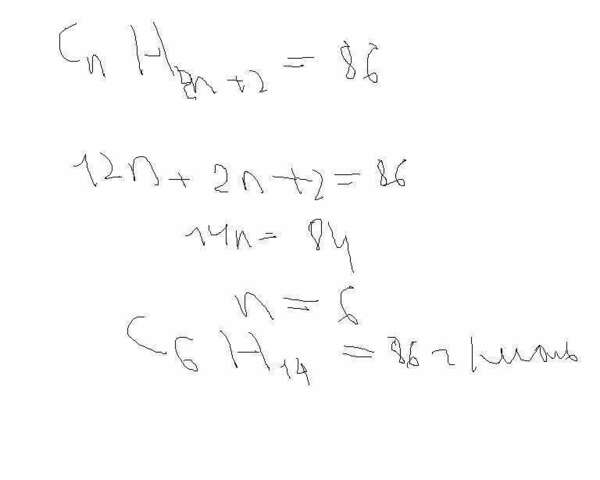 CnH2n+2 = 86
12n + 2n + 2 = 86
14n = 84
n = 6
C6H14 = 86 г/моль